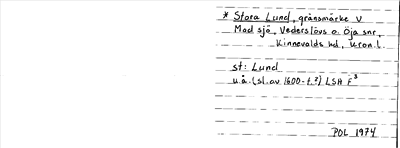 * Stora Lund, gränsmärke V
Mad sjö, Vederslövs o. Öja snr,
Kinnevalds hd, Kron. l.
st: Lund
u.å. (sl. av 1600-t.?) LSA F³
POL 1974